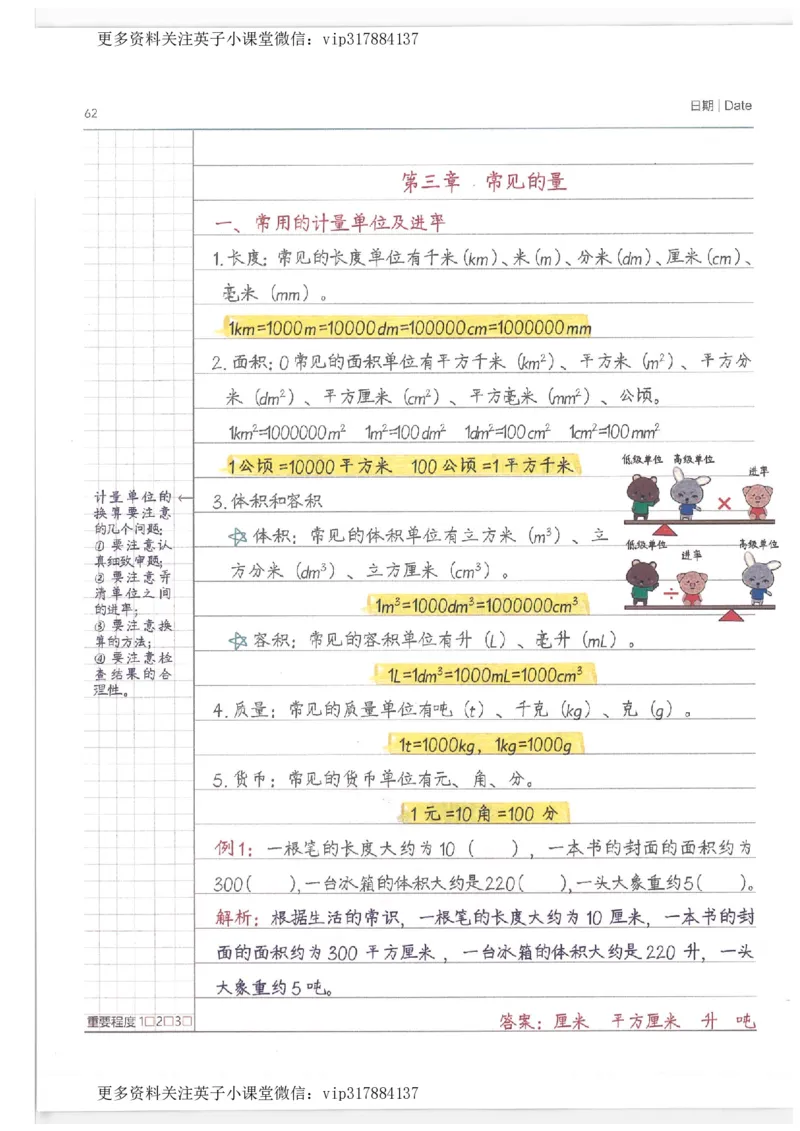 更多资料关注英子小课堂微信：vip317884137
62
日期 | Date
第三章 常见的量
一、常用的计量单位及进率
1.长度：常见的长度单位有千米（km）、米（m）、分米（dm）、厘米（cm）、
毫米（mm）。
1km=1000m=10000dm=100000cm=1000000mm
2.面积：0常见的面积单位有平方千米（km²）、平方米（m²）、平方分
米（dm²）、平方厘米（cm²）、平方毫米（mm²）、公顷。
1km²=1000000m² 1m²=100dm² 1dm²=100cm² 1cm²=100mm²
1公顷=10000平方米 100公顷=1平方千米
低级单位 高级单位
进率
×
3.体积和容积
计量单位的
换算要注意
的几个问题：
①要注意认
真细致审题；
②要注意弄
清单位之间
的进率；
③要注意换
算的方法；
④要注意检
查结果的合
理性。
☆体积：常见的体积单位有立方米（m³）、立
方分米（dm³）、立方厘米（cm³）。
低级单位
进率
高级单位
÷
1m³=1000dm³=1000000cm³
☆容积：常见的容积单位有升（L）、毫升（mL）。
1L=1dm³=1000mL=1000cm³
4.质量：常见的质量单位有吨（t）、千克（kg）、克（g）。
1t=1000kg，1kg=1000g
5.货币：常见的货币单位有元、角、分。
1元=10角=100分
例1：一根笔的长度大约为10（ ），一本书的封面的面积约为
300（ ），一台冰箱的体积大约是220（ ），一头大象重约5（ ）。
解析：根据生活的常识，一根笔的长度大约为10厘米，一本书的封
面的面积约为300平方厘米，一台冰箱的体积大约是220升，一头
大象重约5吨。
重要程度1□2□3□
答案：厘米 平方厘米 升 吨
更多资料关注英子小课堂微信：vip317884137